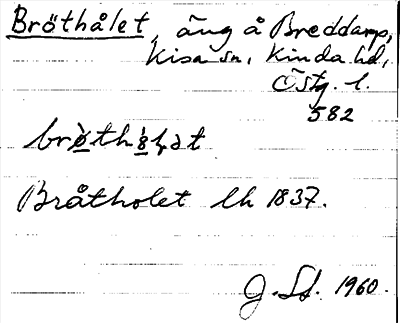 Bröthålet, äng å Breddamp,
Kisa sn, Kinda hd,
Östg. l.
582
Bråtholet lh 1837.
J. Sd. 1960.